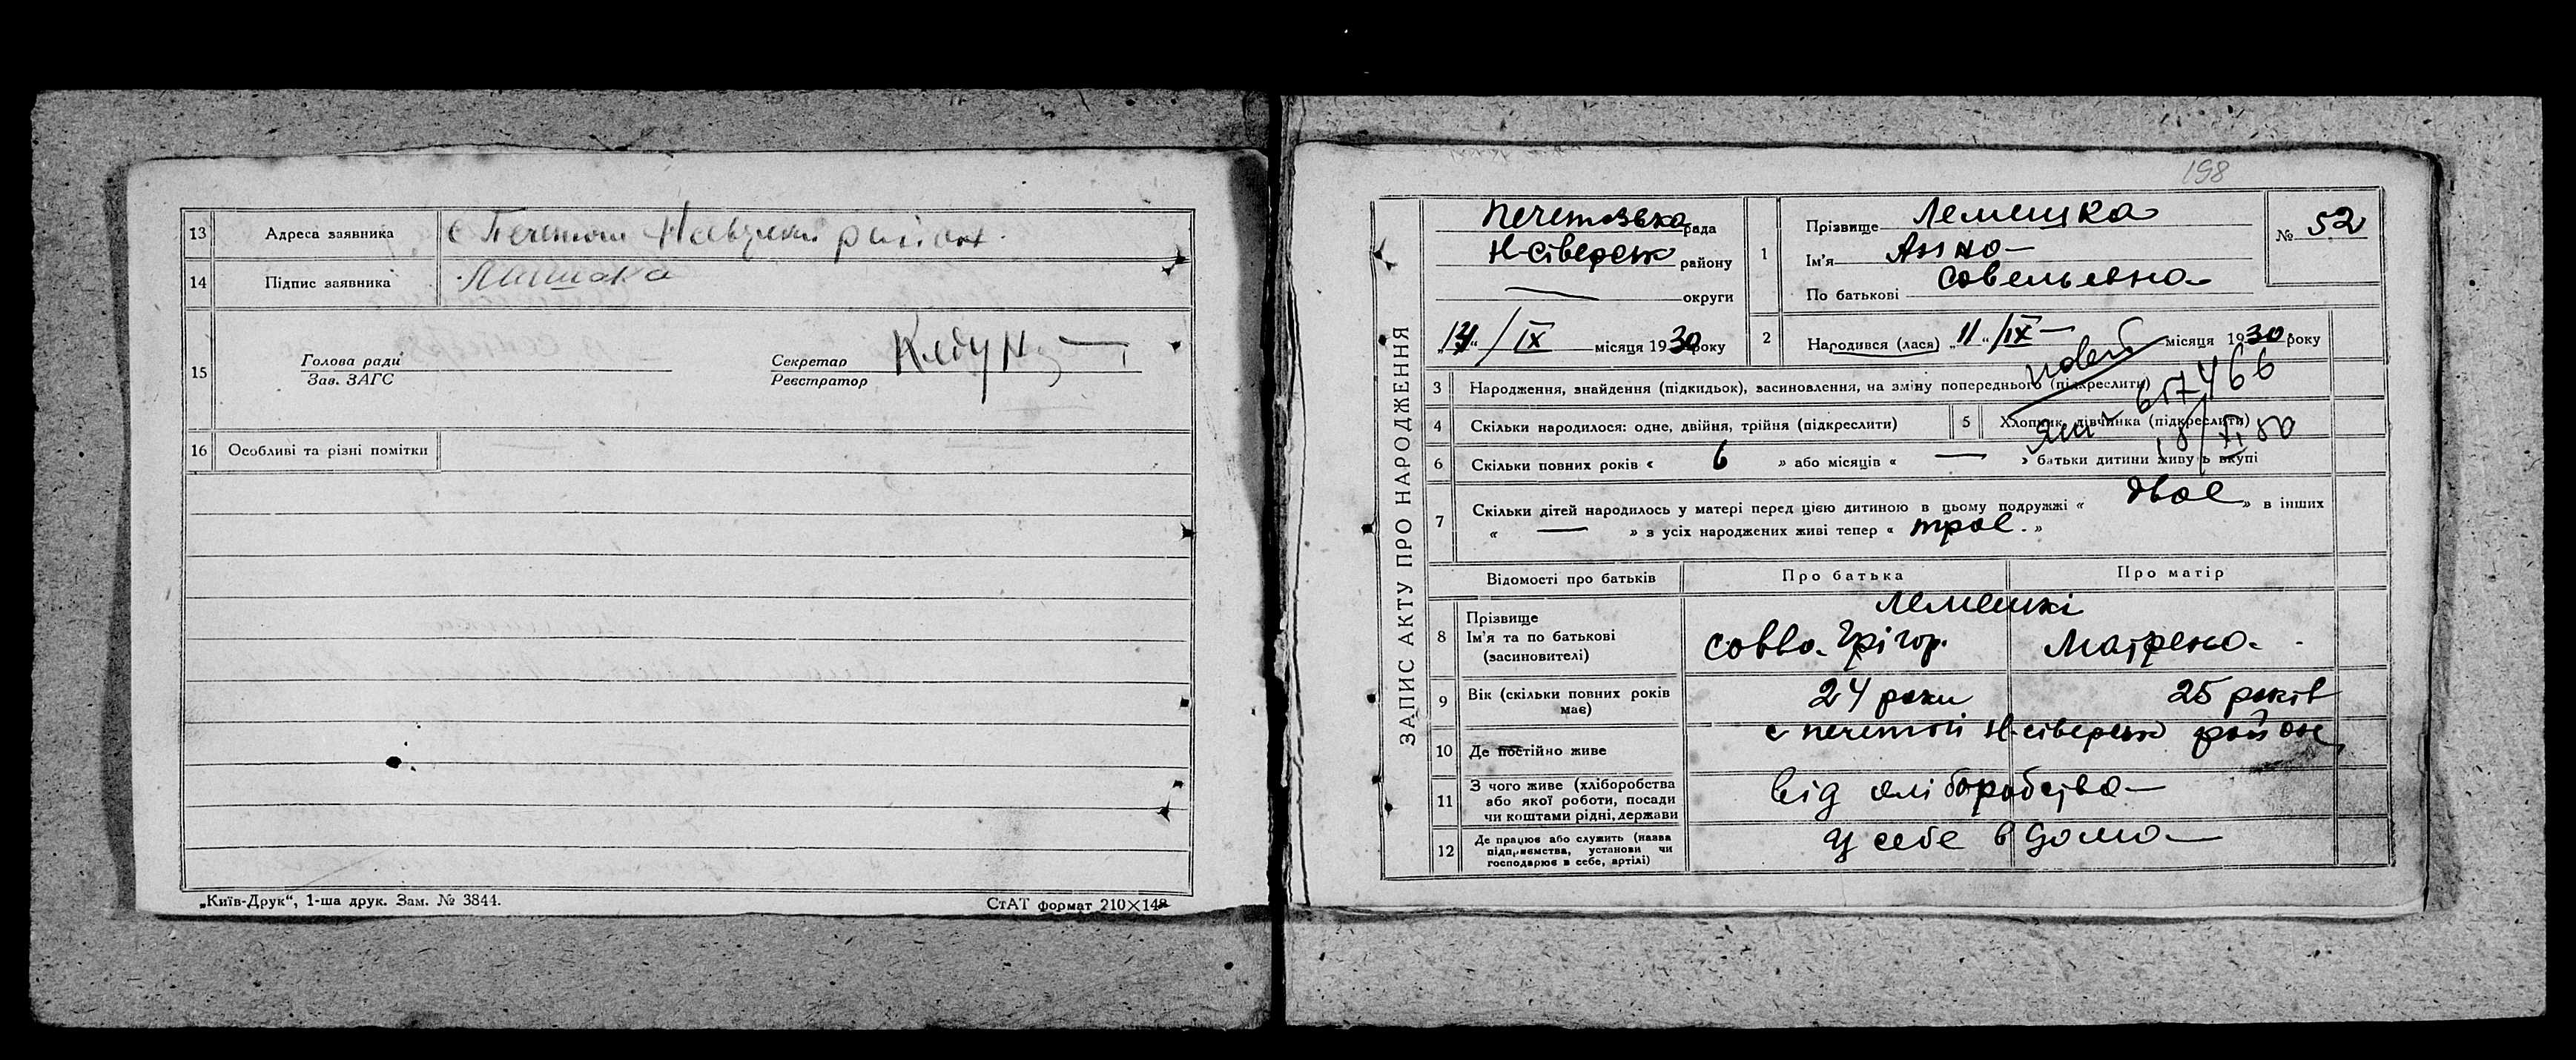 13 Адреса заявника с Печетои район.
14 Підпис заявника
15 Голова ради Секретар
Зав. ЗАГС Реєстратор
16 Особливі та різні помітки
„Київ-Друк“, 1-ша друк. Зам. № 3844. СтАТ формат 210×148
198
ЗАПИС АКТУ ПРО НАРОДЖЕННЯ
рада
Н-Сіверськ району
— округи
/IX місяця 1930 року
1 Прізвище Лемешка
Ім'я Анна
По батькові Савельевна
№ 52
2 Народився (лася) „11“/IX — місяця 1930 року
3 Народження, знайдення (підкидьок), засиновлення, на зміну попереднього (підкреслити)
617466
4 Скільки народилося: одне, двійня, трійня (підкреслити) 5 Хлопчик, дівчинка (підкреслити)
18/XI 50
6 Скільки повних років « 6 » або місяців « — » батьки дитини живуть вкупі
7 Скільки дітей народилось у матері перед цією дитиною в цьому подружжі « двоє » в інших
« — » з усіх народжених живі тепер « троє. »
Відомості про батьків Про батька Про матір
8 Прізвище Лемешкі
Ім'я та по батькові Савва Грігор. Матрена
(засиновителі)
9 Вік (скільки повних років має) 24 роки 25 років
10 Де постійно живе с Печетой Н-сіверськ район
11 З чого живе (хліборобства
або якої роботи, посади
чи коштами рідні, держави
від хліборобства
12 Де працює або служить (назва
підприємства, установи чи
господарює в себе, артілі)
у себе вдома